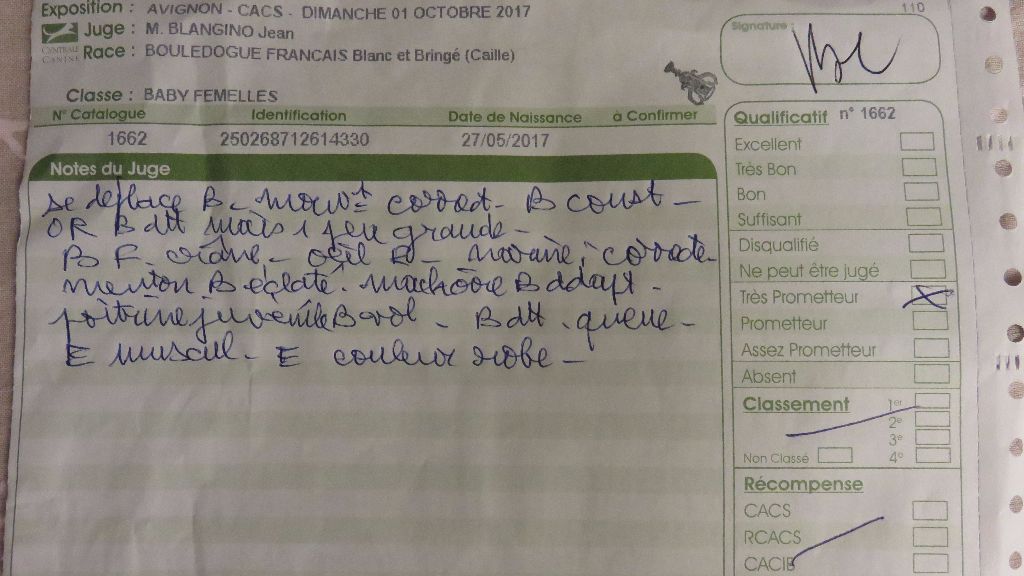 110
Exposition : AVIGNON - CACS - DIMANCHE 01 OCTOBRE 2017
Juge : M. BLANGINO Jean
CENTRALE CANINE
Race : BOULEDOGUE FRANCAIS Blanc et Bringé (Caille)
Signature :
Classe : BABY FEMELLES
N° Catalogue Identification Date de Naissance à Confirmer
1662 250268712614330 27/05/2017
Notes du Juge
se déplace B. mouvt correct - B const -
OR B dtt mais 1 peu grande -
B F. crâne - oeil B - narine, correcte -
menton B éclaté. machoire B ddaft -
poitrine juvénile B vol - B dtt. queue -
E muscul - E couleur robe -
Qualificatif n° 1662
Excellent
Très Bon
Bon
Suffisant
Disqualifié
Ne peut être jugé
Très Prometteur
Prometteur
Assez Prometteur
Absent
Classement
1er
2e
3e
Non Classé 4e
Récompense
CACS
RCACS
CACIB